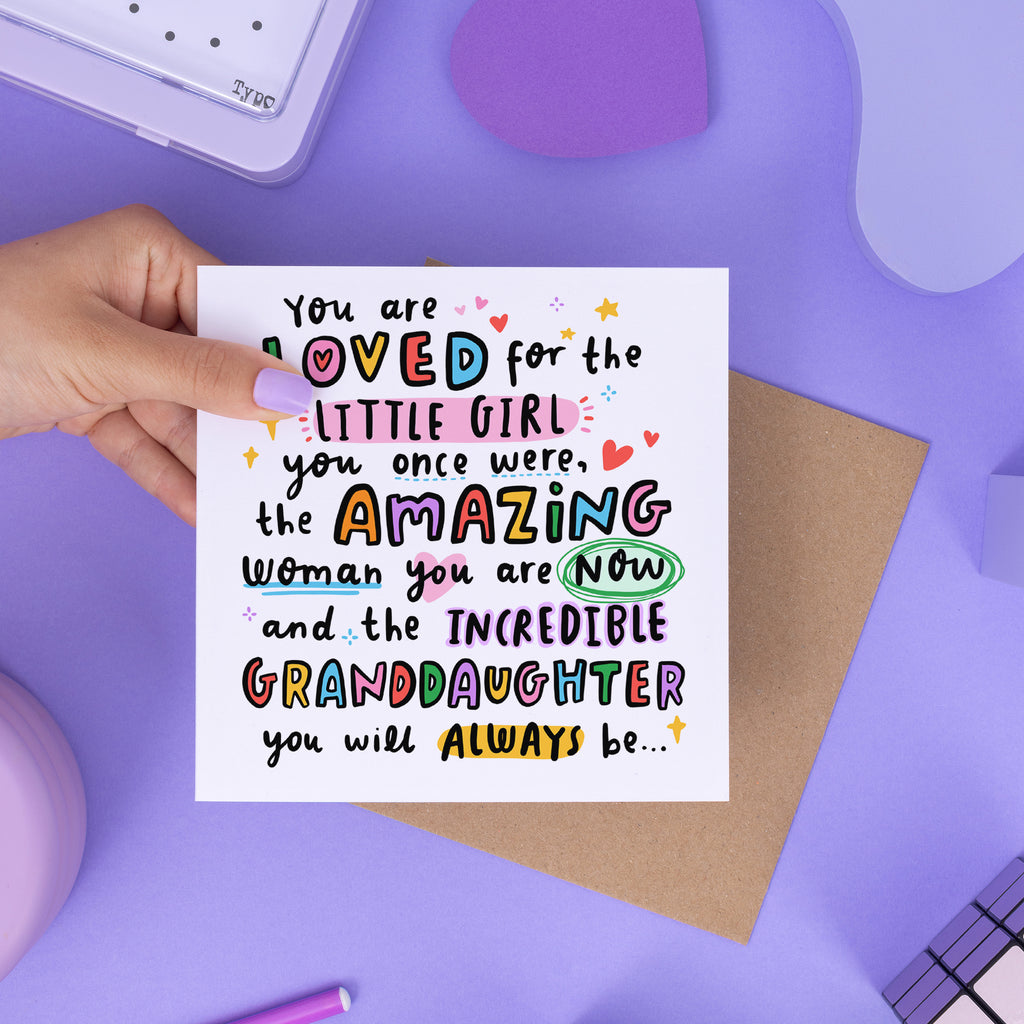 Typo
You are
LOVED for the
LITTLE GIRL
you once were,
the AMAZING
woman you are NOW
and the INCREDIBLE
GRANDDAUGHTER
you will ALWAYS be...